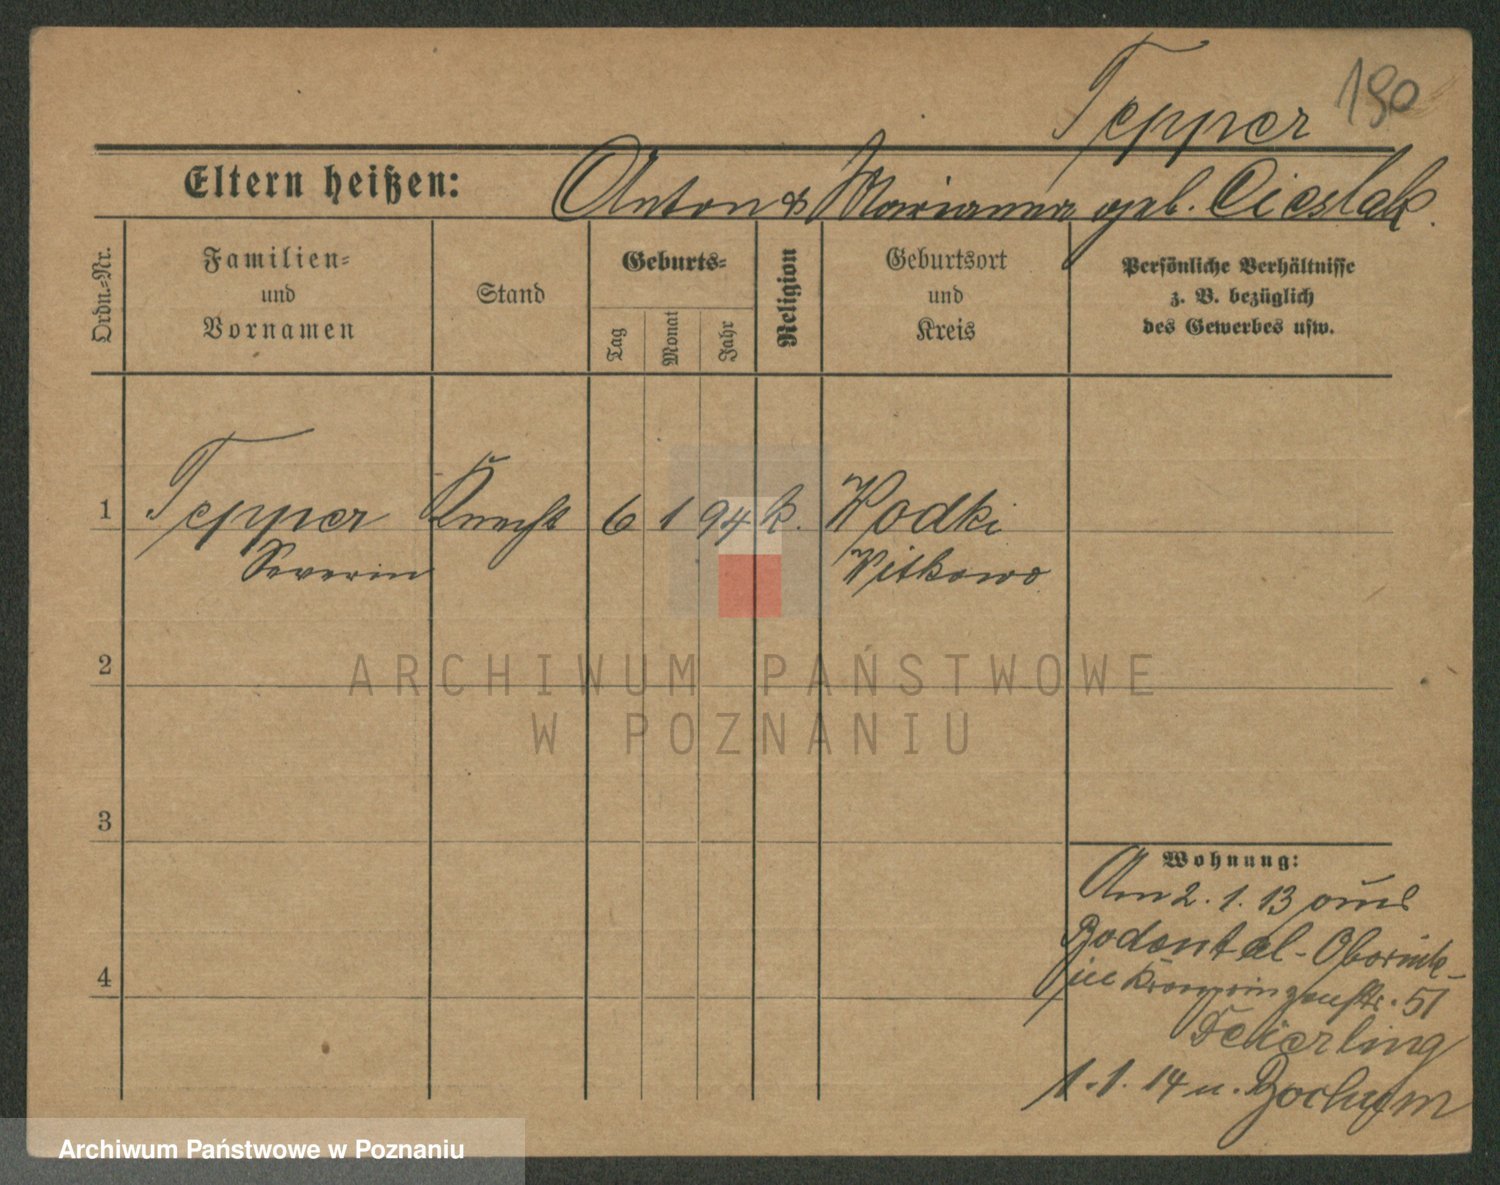 190
Tepper
Eltern heißen: Anton & Marianna geb. Cieslak.
Ordn.=Nr.
Familien=
und
Vornamen
Stand
Geburts=
Tag
Monat
Jahr
Religion
Geburtsort
und
Kreis
Persönliche Verhältnisse
z. B. bezüglich
des Gewerbes usw.
1 Tepper Knecht 6 1 94 k. Wodki
Severin Witkowo
2
ARCHIWUM PAŃSTWOWE
W POZNANIU
3
Wohnung:
Am 2. 1. 13 aus
Bodental-Obornik
in Kronprinzenstr. 51
Feierling
1.1. 14 n. Bochum
4
Archiwum Państwowe w Poznaniu